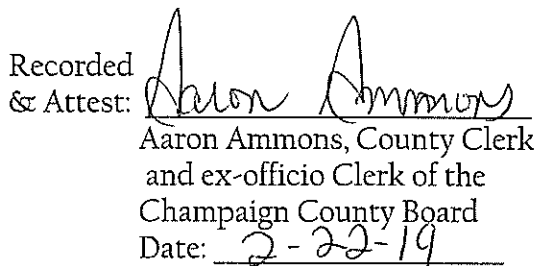 Recorded
& Attest: Aaron Ammons
Aaron Ammons, County Clerk
and ex-officio Clerk of the
Champaign County Board
Date: 2-22-19